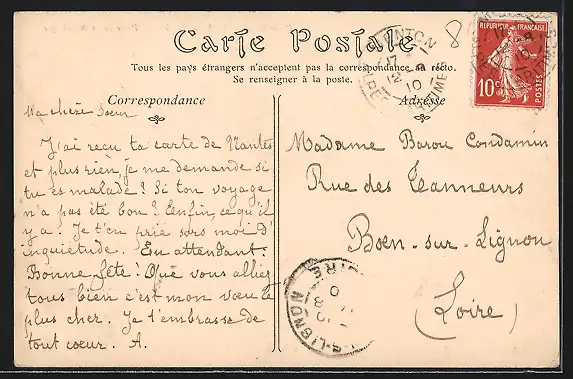 Carte Postale
Tous les pays étrangers n'acceptent pas la correspondance au recto.
Se renseigner à la poste.
Correspondance
Adresse
8
RÉPUBLIQUE FRANÇAISE
10c
MENTON
Ma chère Soeur
J'ai reçu ta carte de Nantes
et plus rien, je me demande si
tu es malade? Si ton voyage
n'a pas été bon? Enfin, ce qu'il
y a. Je t'en prie sors moi d'
inquiétude. En attendant.
Bonne fête! Que vous alliez
tous bien c'est mon vœu le
plus cher. Je t'embrasse de
tout coeur. A.
Madame Barou Condamin
Rue des Tanneurs
Boen-sur-Lignon
(Loire)
LIGNON
LOIRE